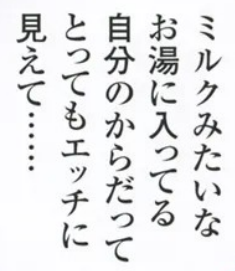 ミルクみたいな
お湯に入ってる
自分のからだって
とってもエッチに
見えて……